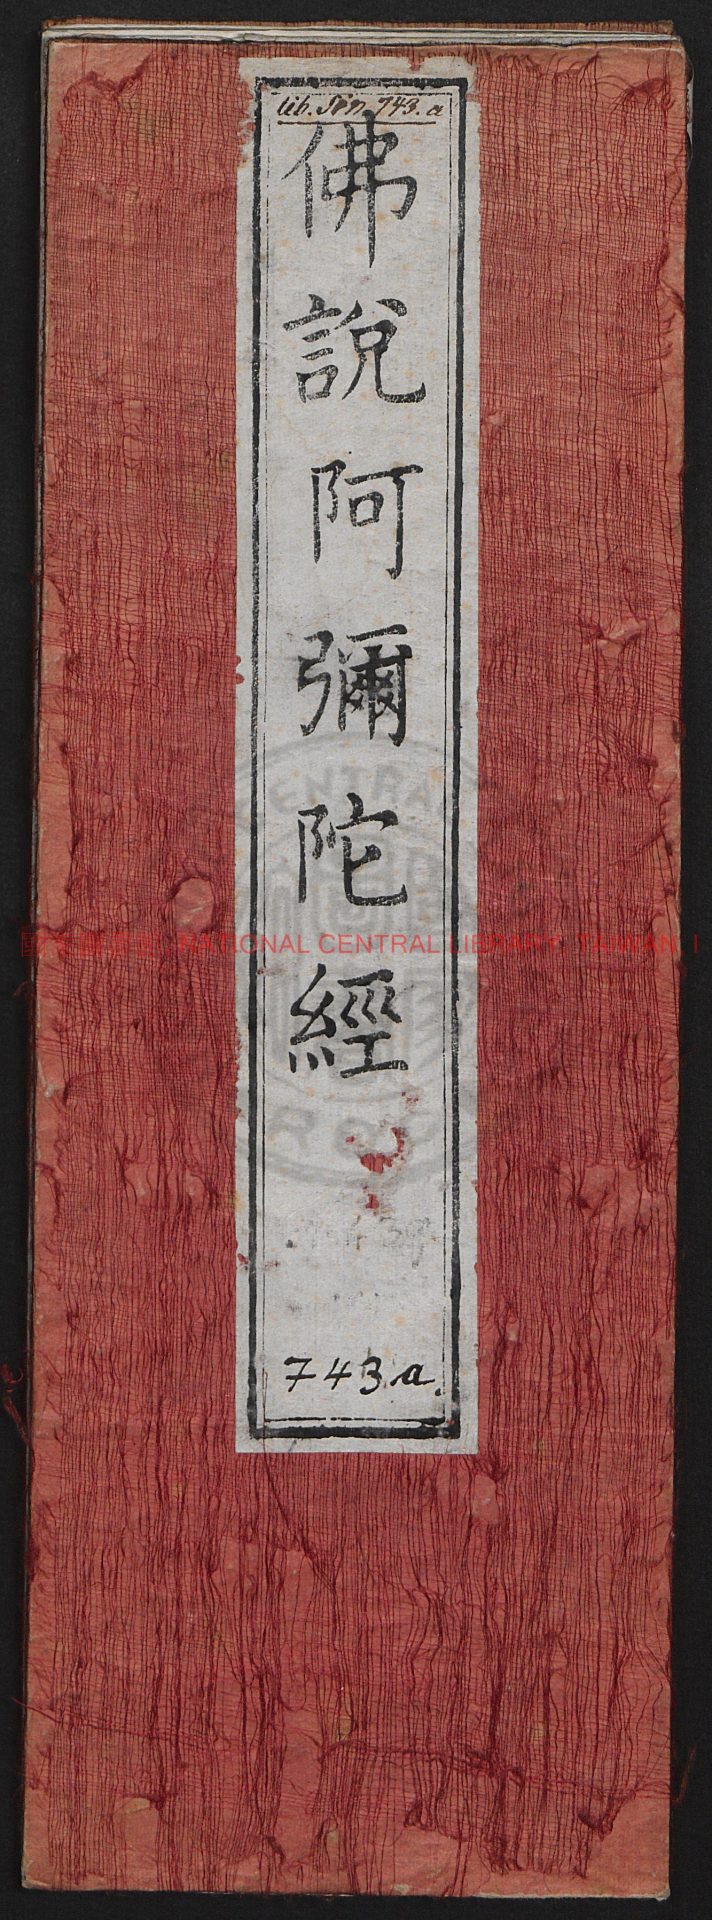 lib. Sin. 743. a
佛說阿彌陀經
743.a.
國家圖書館, NATIONAL CENTRAL LIBRARY, TAIWAN
CENTRA